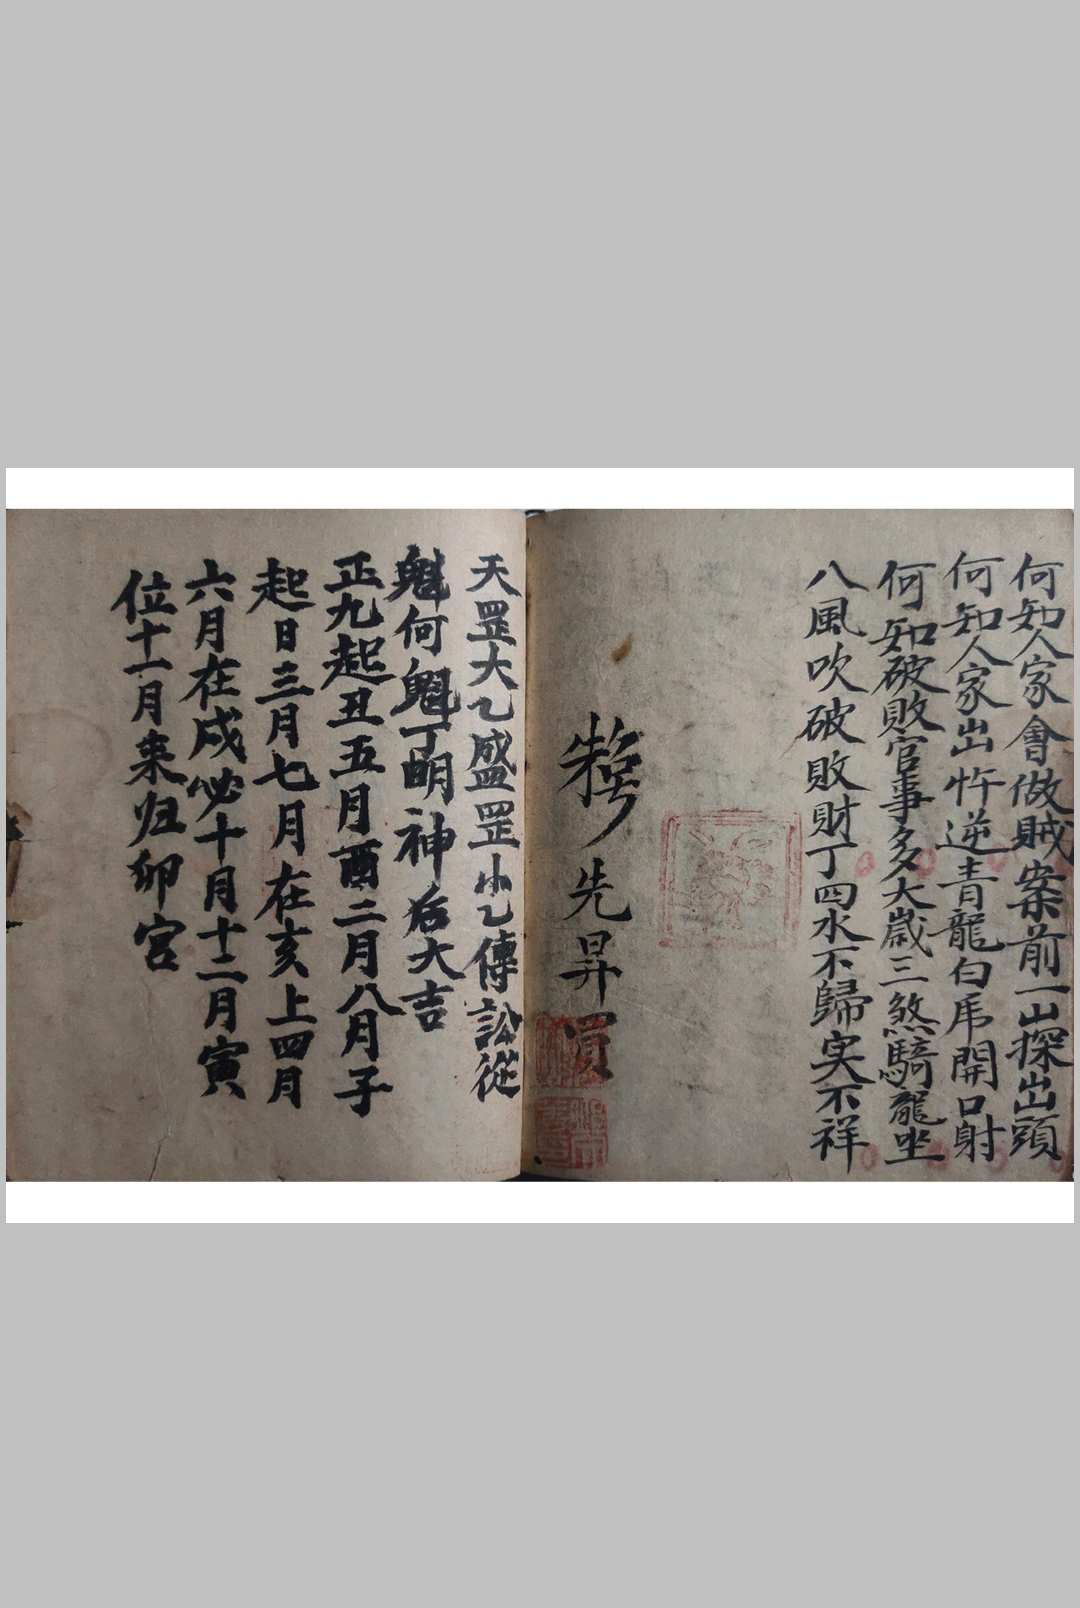 何知人家會做賊案前一山探出頭
何知人家出忤逆青龍白虎開口射
何知破敗官事多大歲三煞騎龍坐
八風吹破敗財丁四水不歸実不祥
先昇買
天罡大乙盛罡小乙傳訟從
魁何魁丁明神后大吉
正九起丑五月酉二月八月子
起日三月七月在亥上四月
六月在戌必十月十二月寅
位十一月来归卯宮